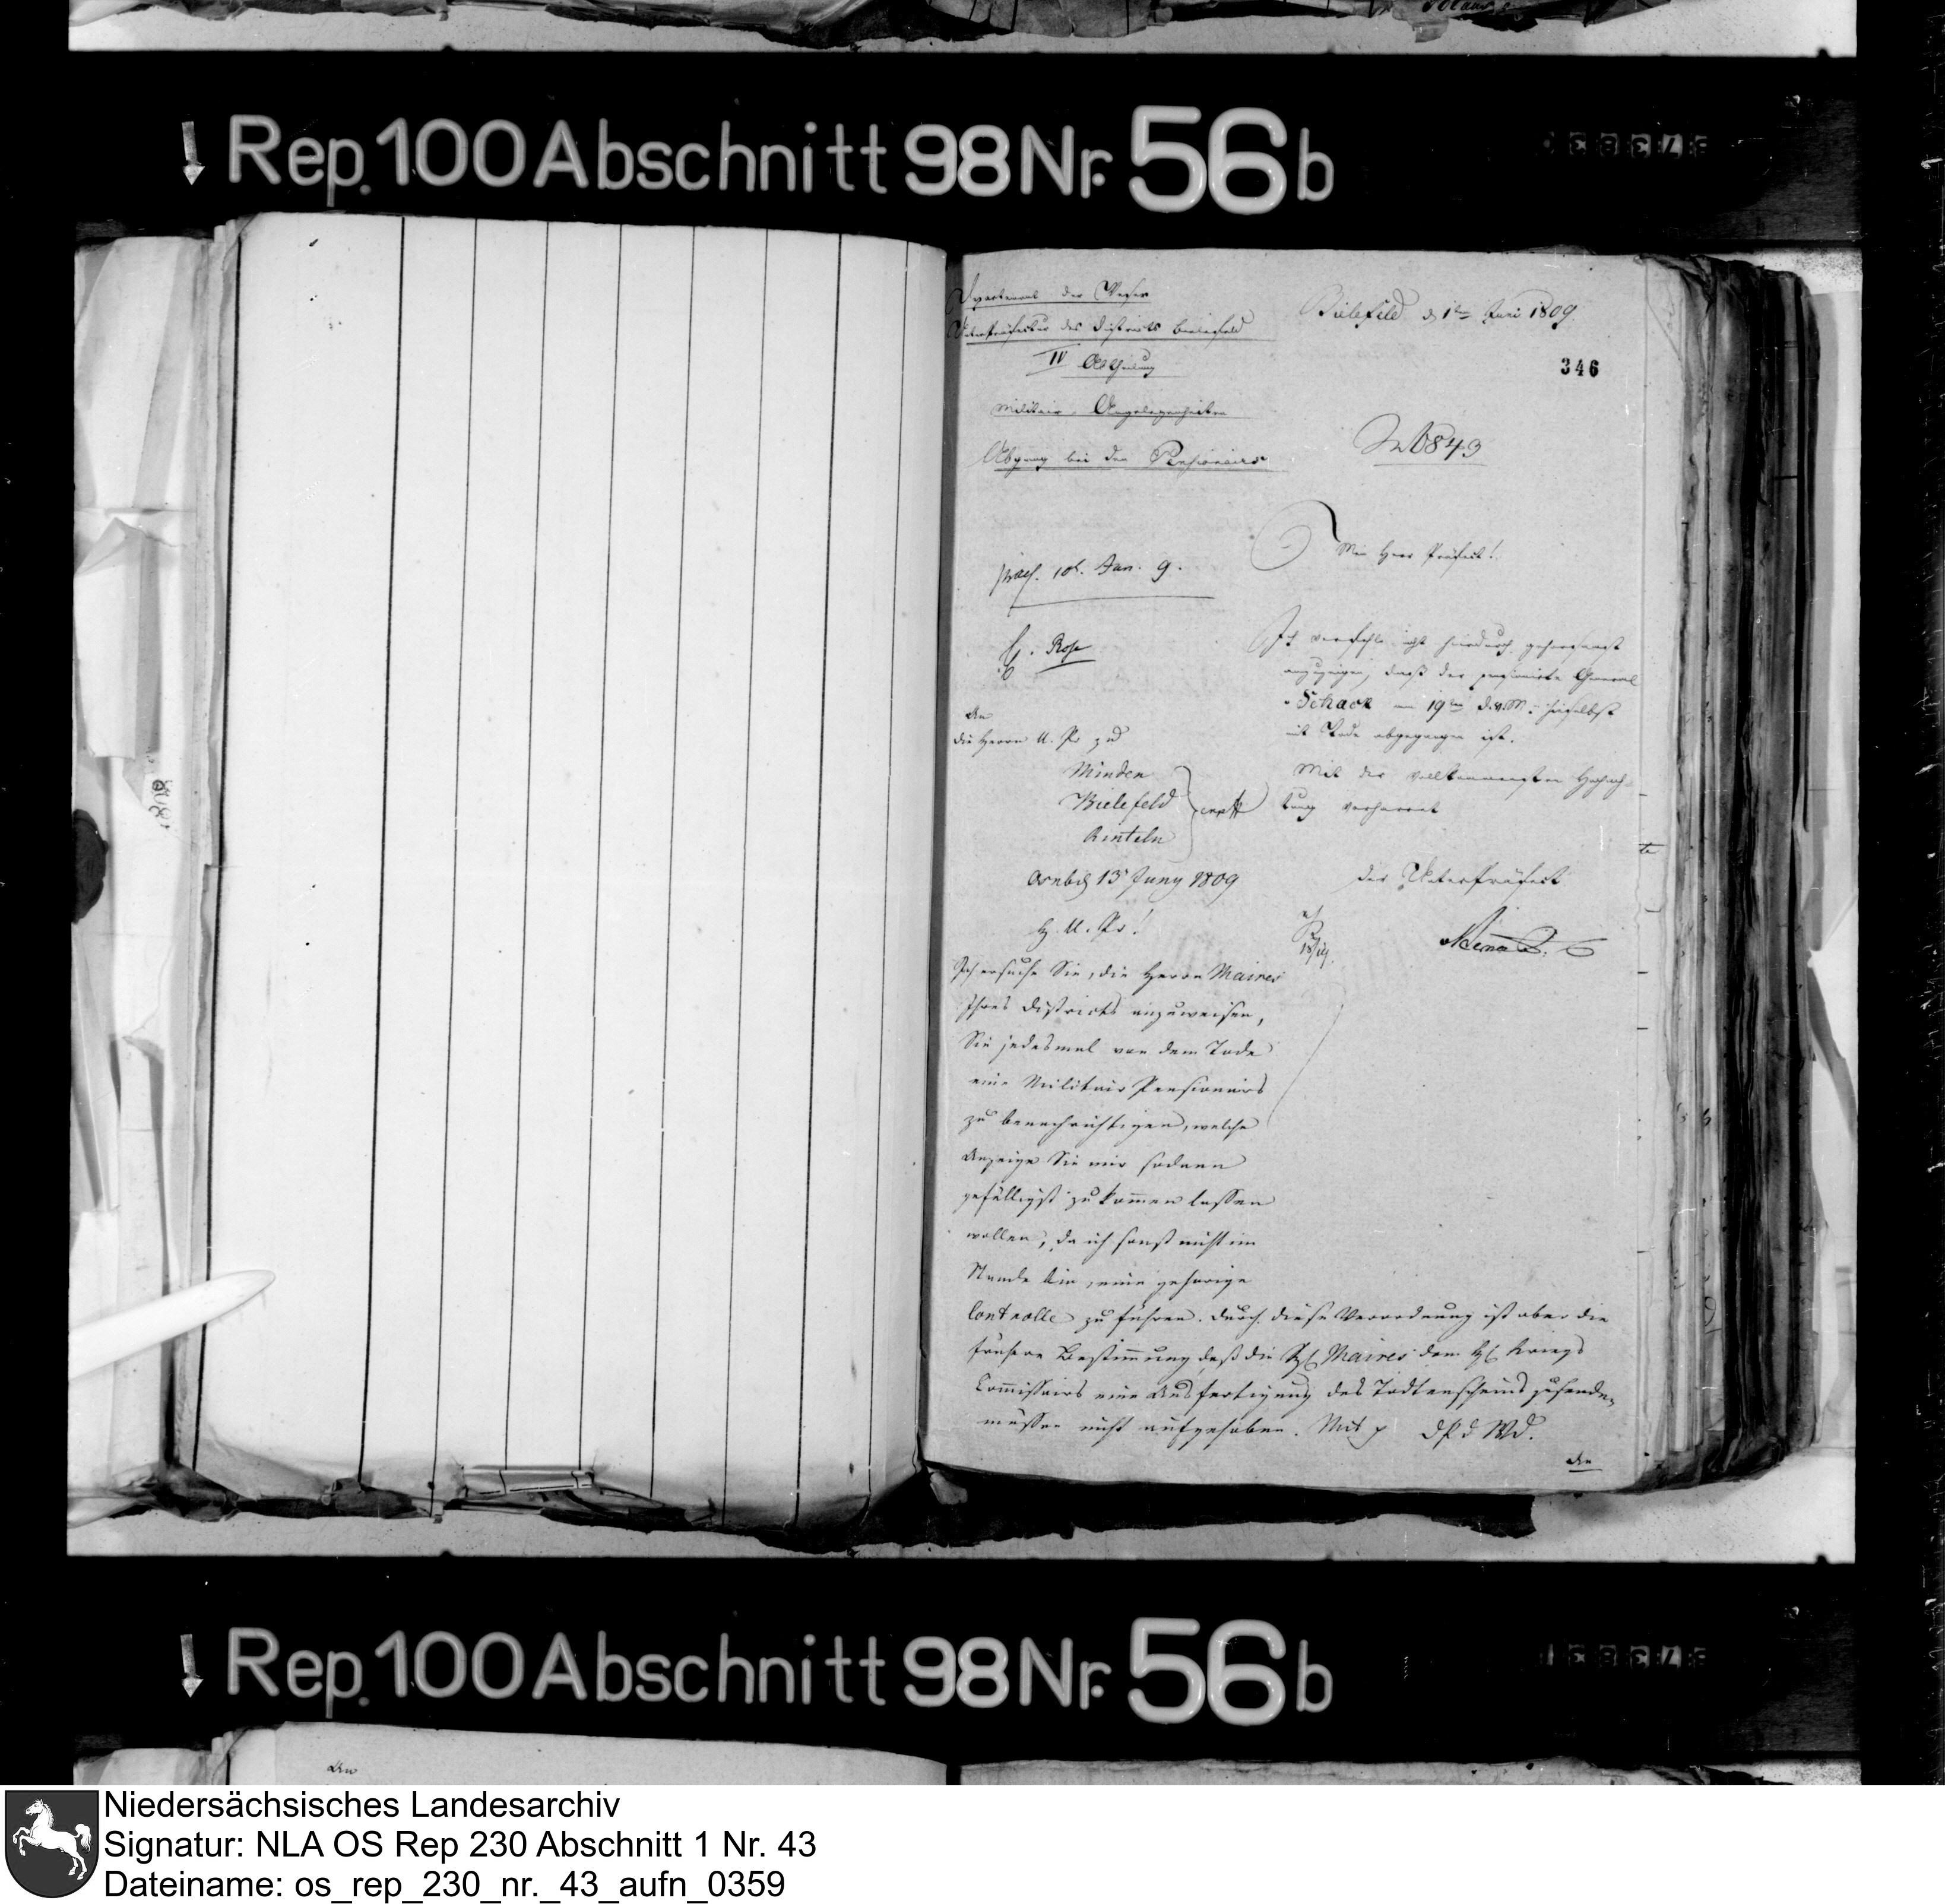 Rep. 100 Abschnitt 98 Nr. 56b
Departement der Weser
Unterpräfectur des Districts Bielefeld
IV Abtheilung
Militair-Angelegenheiten
Abgang bei den Pensionairs
Bielefeld d 1ten Juni 1809.
346
No 843
Mein Herr Präfect!
Ich verfehle nicht hierdurch gehorsamst
anzuzeigen, daß der pensionirte General
v Schack am 19ten d. v. M. hieselbst
mit Tode abgegangen ist.
Mit der vollkommensten Hochach-
tung verharret
der Unterpräfect
praes. 10t. Jun. 9.
An
die Herrn U. Pr zu
Minden
Bielefeld
Rinteln
Osnbck 13t Juny 1809
H. U. Pr!
Ich ersuche Sie, die Herrn Maires
Ihres Districts anzuweisen,
Sie jedesmal von dem Tode
eines Militair Pensionairs
zu benachrichtigen, welche
Anzeige Sie mir sodann
gefälligst zukommen lassen
wollen, da ich sonst nicht im
Stande bin, eine gehörige
Controlle zu führen. Durch diese Verordnung ist aber die
frühere Bestimmung daß die HH Maires dem HE Kriegs
Commissairs eine Ausfertigung des Todtenscheins zusenden
müssen nicht aufgehoben. Mit p d P d W D.
An
Rep. 100 Abschnitt 98 Nr. 56b
An
Niedersächsisches Landesarchiv
Signatur: NLA OS Rep 230 Abschnitt 1 Nr. 43
Dateiname: os_rep_230_nr._43_aufn_0359